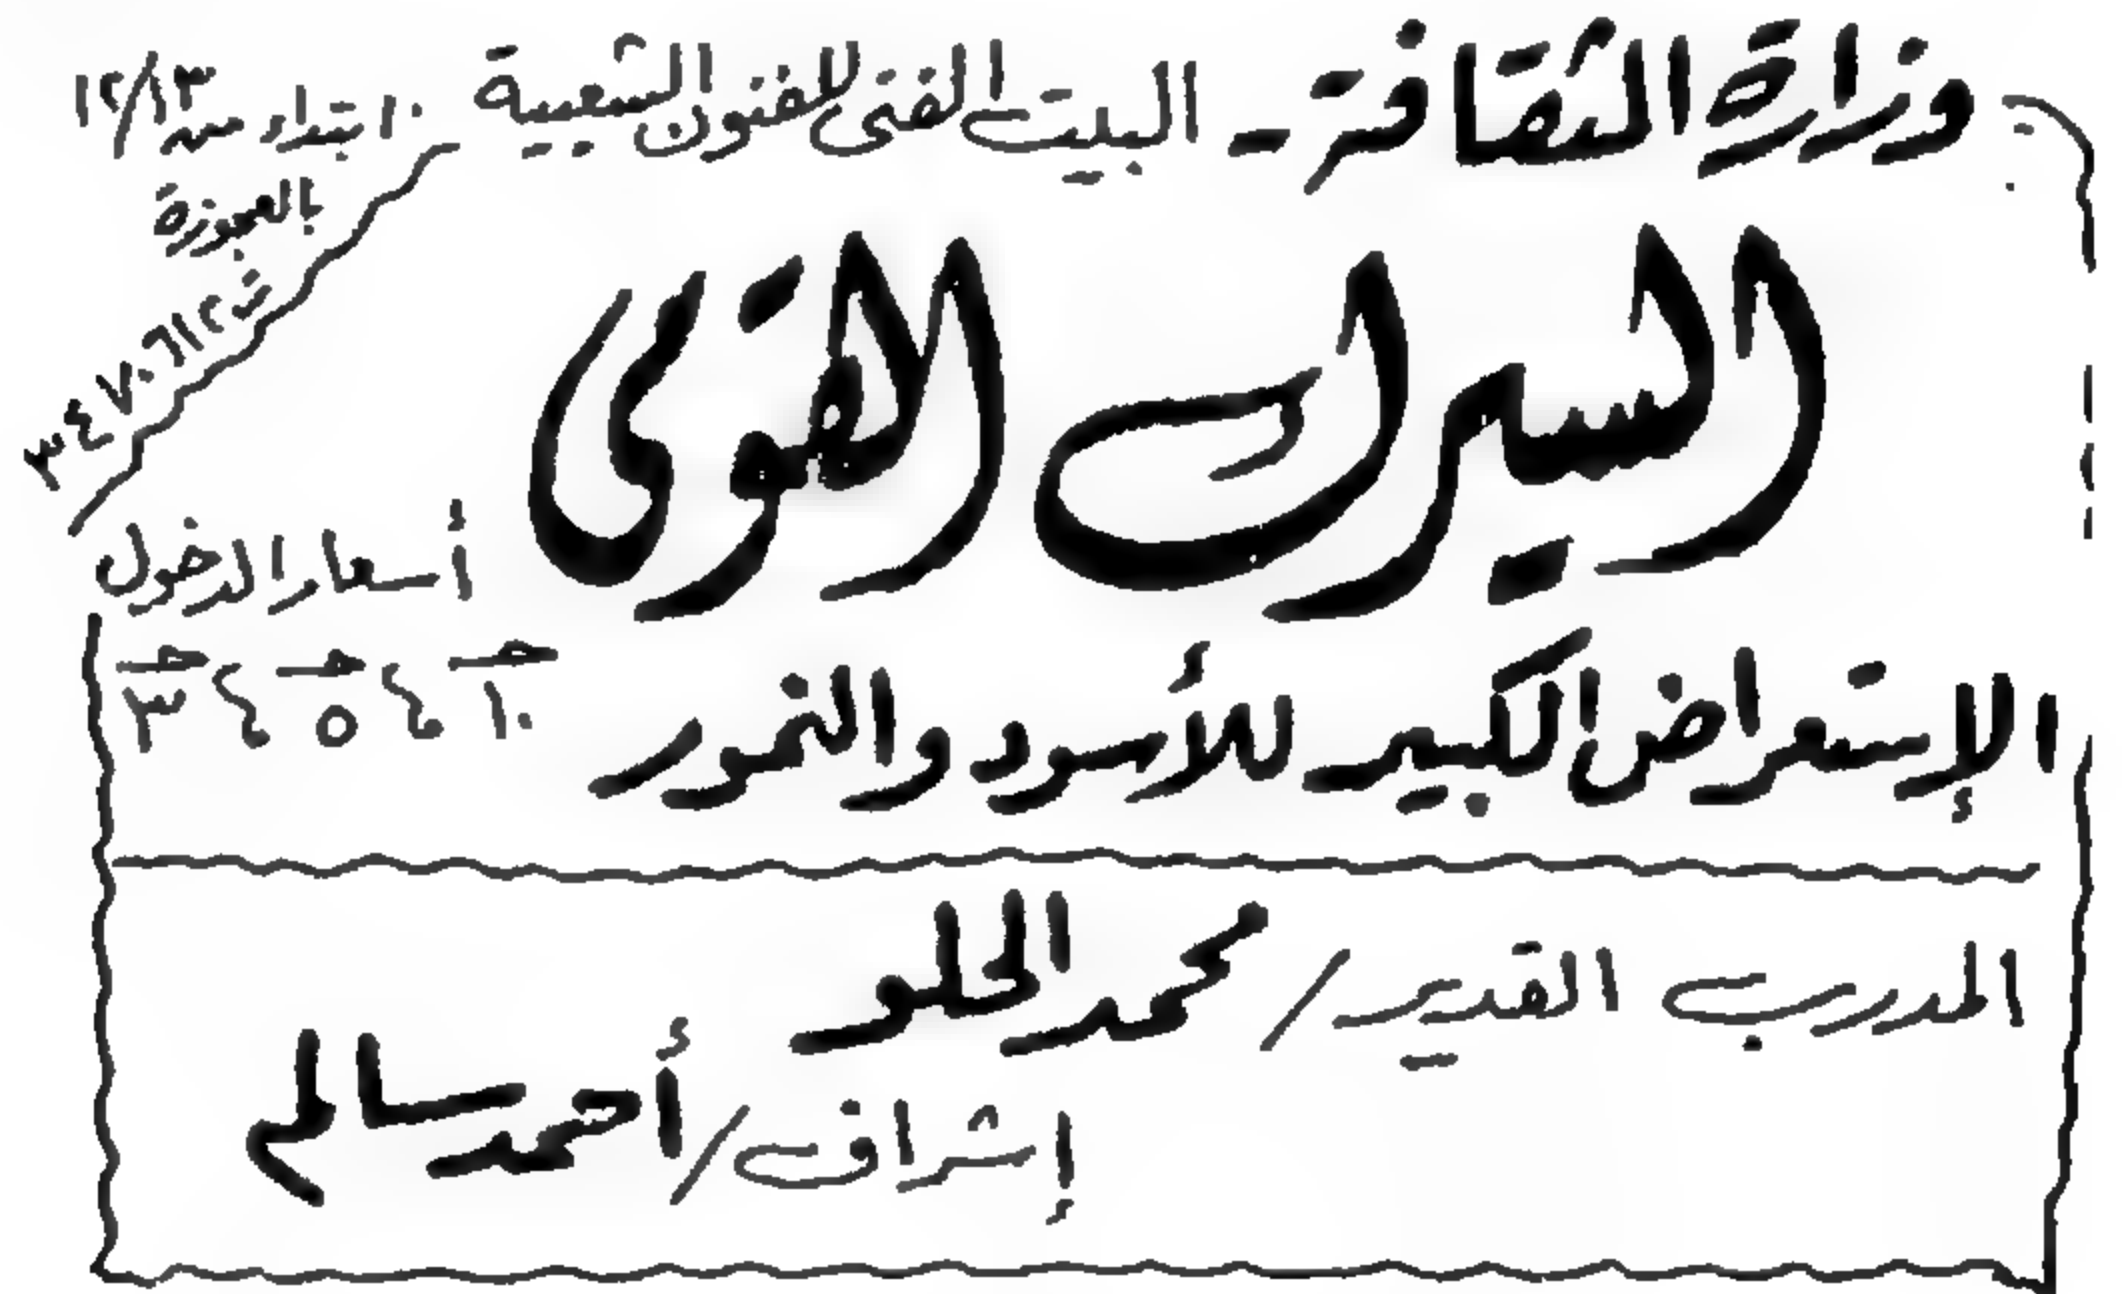 وزارة الثقافة - البيت الفنى للفنون الشعبية
ابتداء من ١٢/١٣
بالعجوزة
ت ٣٤٧٠٦١٢
السيرك القومى
أسعار الدخول
١٠ جـ ، ٥ جـ ، ٣ جـ
الإستعراض الكبير للأسود والنمور
المدرب القدير / محمد الحلو
إشراف / أحمد سالم